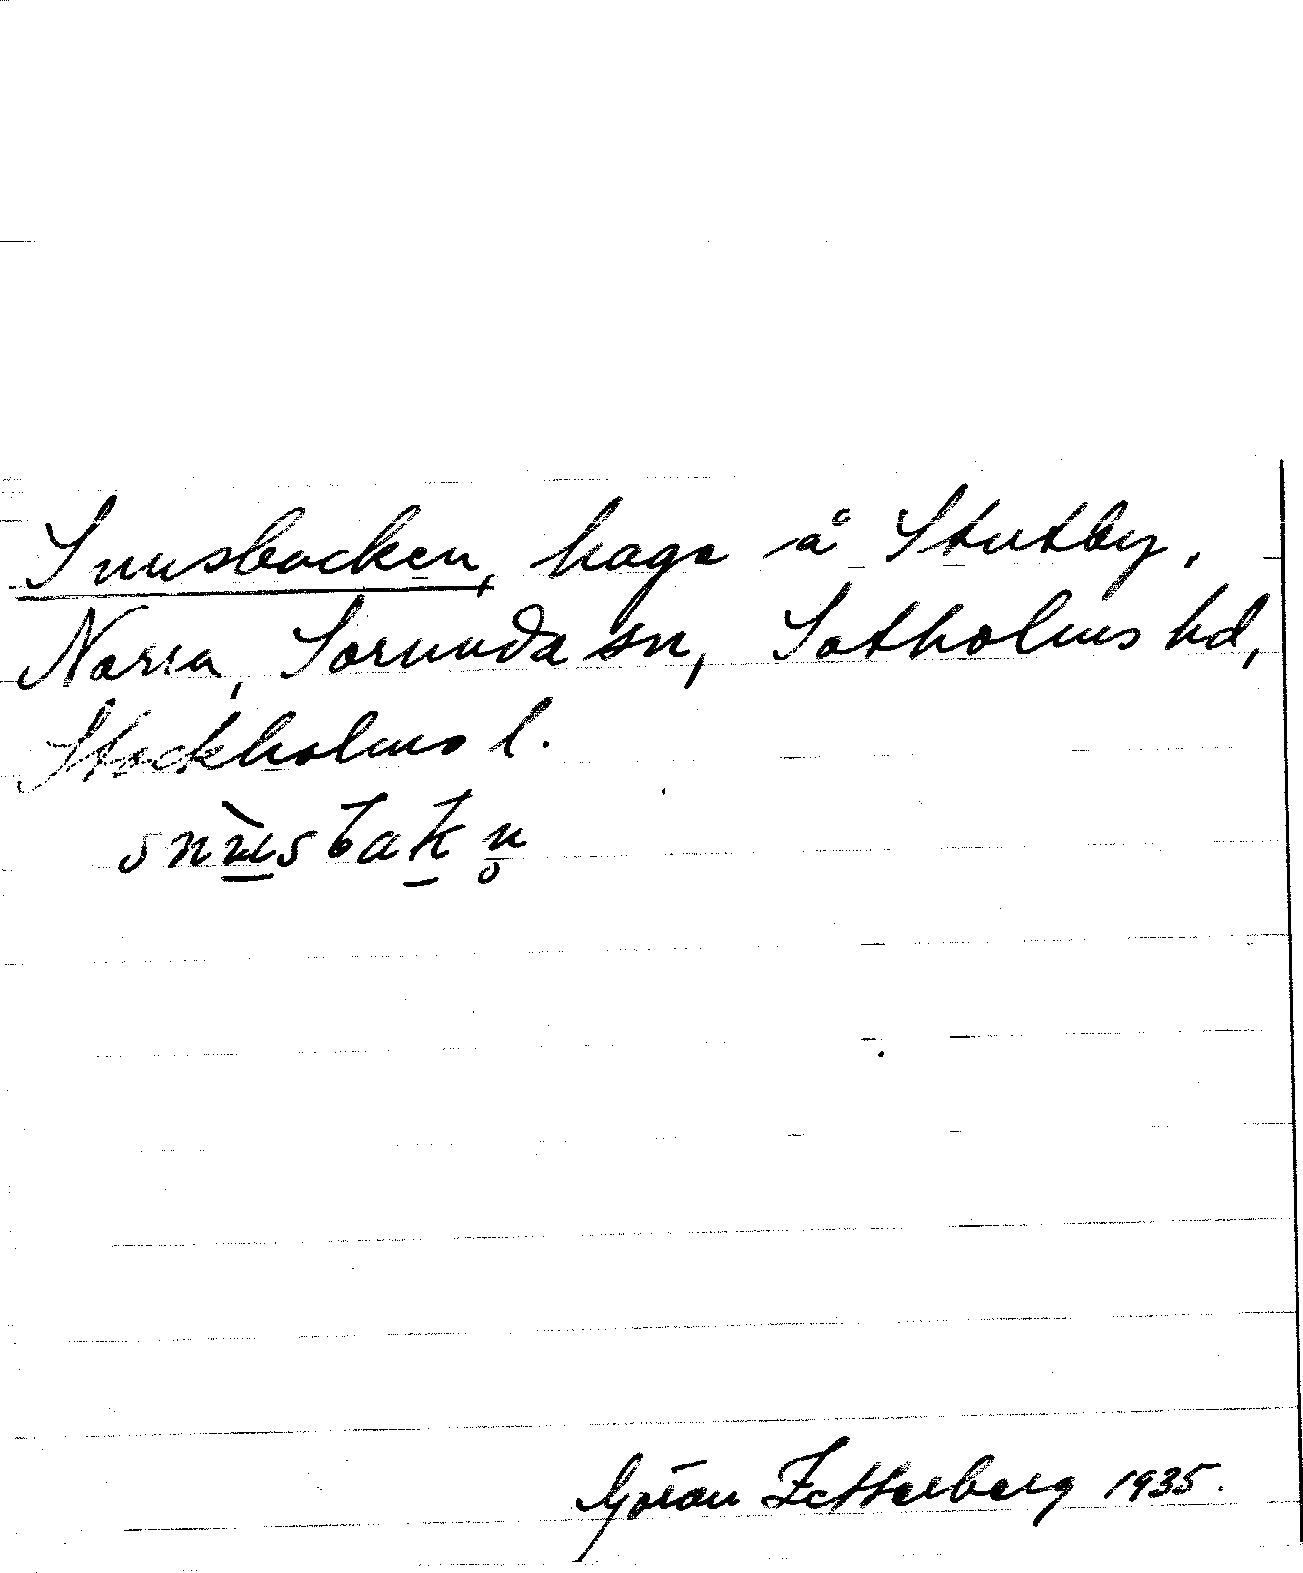 Snusbacken, hage å Stutby,
Norra, Sorunda sn, Sotholms hd,
Stockholms l.
snùsbakn̥
Göran Zetterberg 1935.